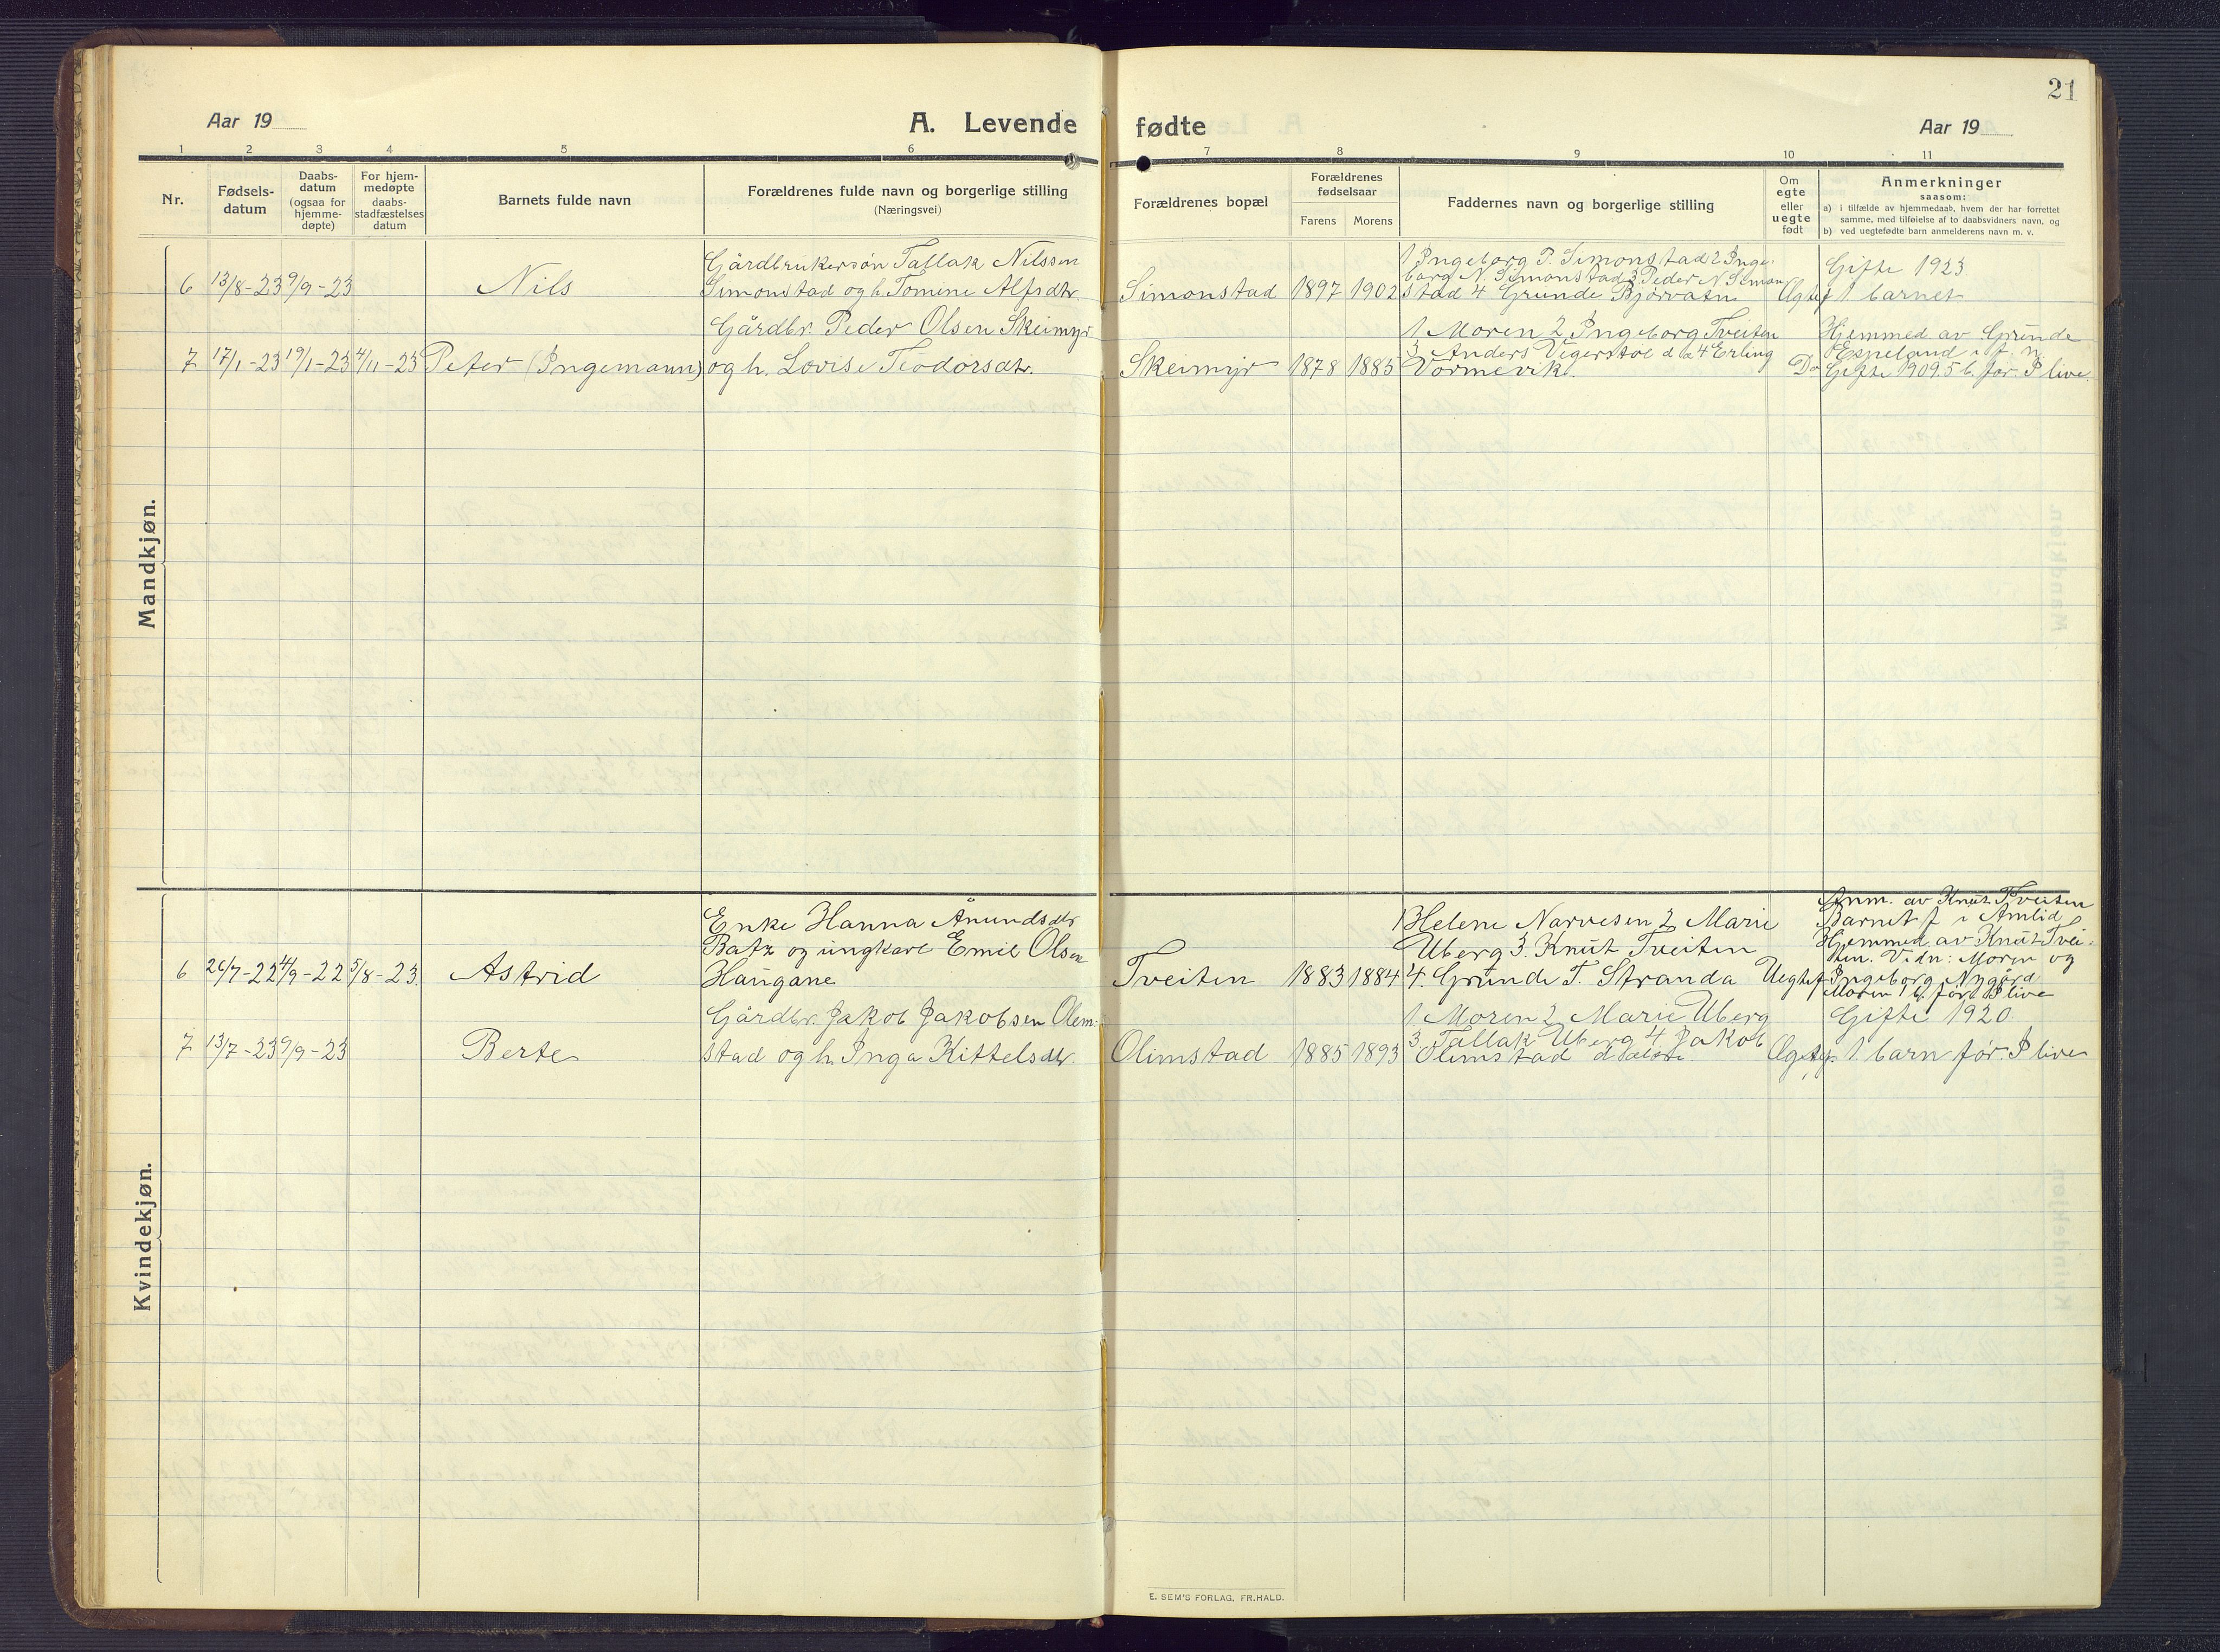 21
Aar 19
A. Levende
fødte
Aar 19
1 2 3 4 5 6 7 8 9 10 11
Nr.
Fødsels-
datum
Daabs-
datum
(ogsaa for
hjemme-
døpte)
For hjem-
medøpte
daabs-
stadfæstelses
datum
Barnets fulde navn
Forældrenes fulde navn og borgerlige stilling
(Næringsvei)
Forældrenes bopæl
Forældrenes
fødselsaar
Farens Morens
Faddernes navn og borgerlige stilling
Om
egte
eller
uegte
født
Anmerkninger
saasom:
a) i tilfælde av hjemmedaab, hvem der har forrettet
samme, med tilføielse af to daabsvidners navn, og
b) ved uegtefødte barn anmelderens navn m. v.
Mandkjøn.
6 13/8-23 9/9-23
Nils
Gårdbrukersøn Tallak Nilssen
Simonstad og h. Tomine Alfsdtr.
Simonstad 1897 1902
1 Ingeborg P. Simonstad 2 Inge-
borg N. Simonstad 3 Peder N Simon
stad 4 Grunde Bjørvatn
Ægtef
Gifte 1923
1 barnet
7 17/1-23 19/1-23 4/11-23
Peter (Ingemann)
Gårdbr. Peder Olsen Skeimyr
og h. Lovise Teodorsdtr.
Skeimyr 1878 1885
1 Moren 2 Ingeborg Tveiten
3 Anders Vegerstøl 4 Erling
Vormevik.
Do
Hjemmed av Grunde
Espeland
Gifte 1909. 5 b. før. I live.
Kvindekjøn.
6 26/7-22 4/9-22 5/8-23.
Astrid
Enke Hanna Ånundsdtr
Batz og ungkarl Emil Olsen
Haugane
Tveiten 1883 1884
1 Helene Narvesen 2 Marie
Uberg 3. Knut Tveiten
4. Grunde T. Stranda
Uegtef
Anm. av Knut Tveiten
Barnet f i Amlid
Hjemmed. av Knut Tvei-
ten. Vidn: Moren og
Ingeborg Nygård
Moren 1 b. før. I live
7 13/7-23 9/9-23
Berte
Gårdbr. Jakob Jakobsen Olem-
stad og h. Inga Kittelsdtr.
Olimstad 1885 1893
1 Moren 2 Marie Uberg
3. Tallak Uberg 4 Jakob
Olimstad
Ægtef.
Gifte 1920.
1 barn før. I live
E. SEM'S FORLAG, FR.HALD.